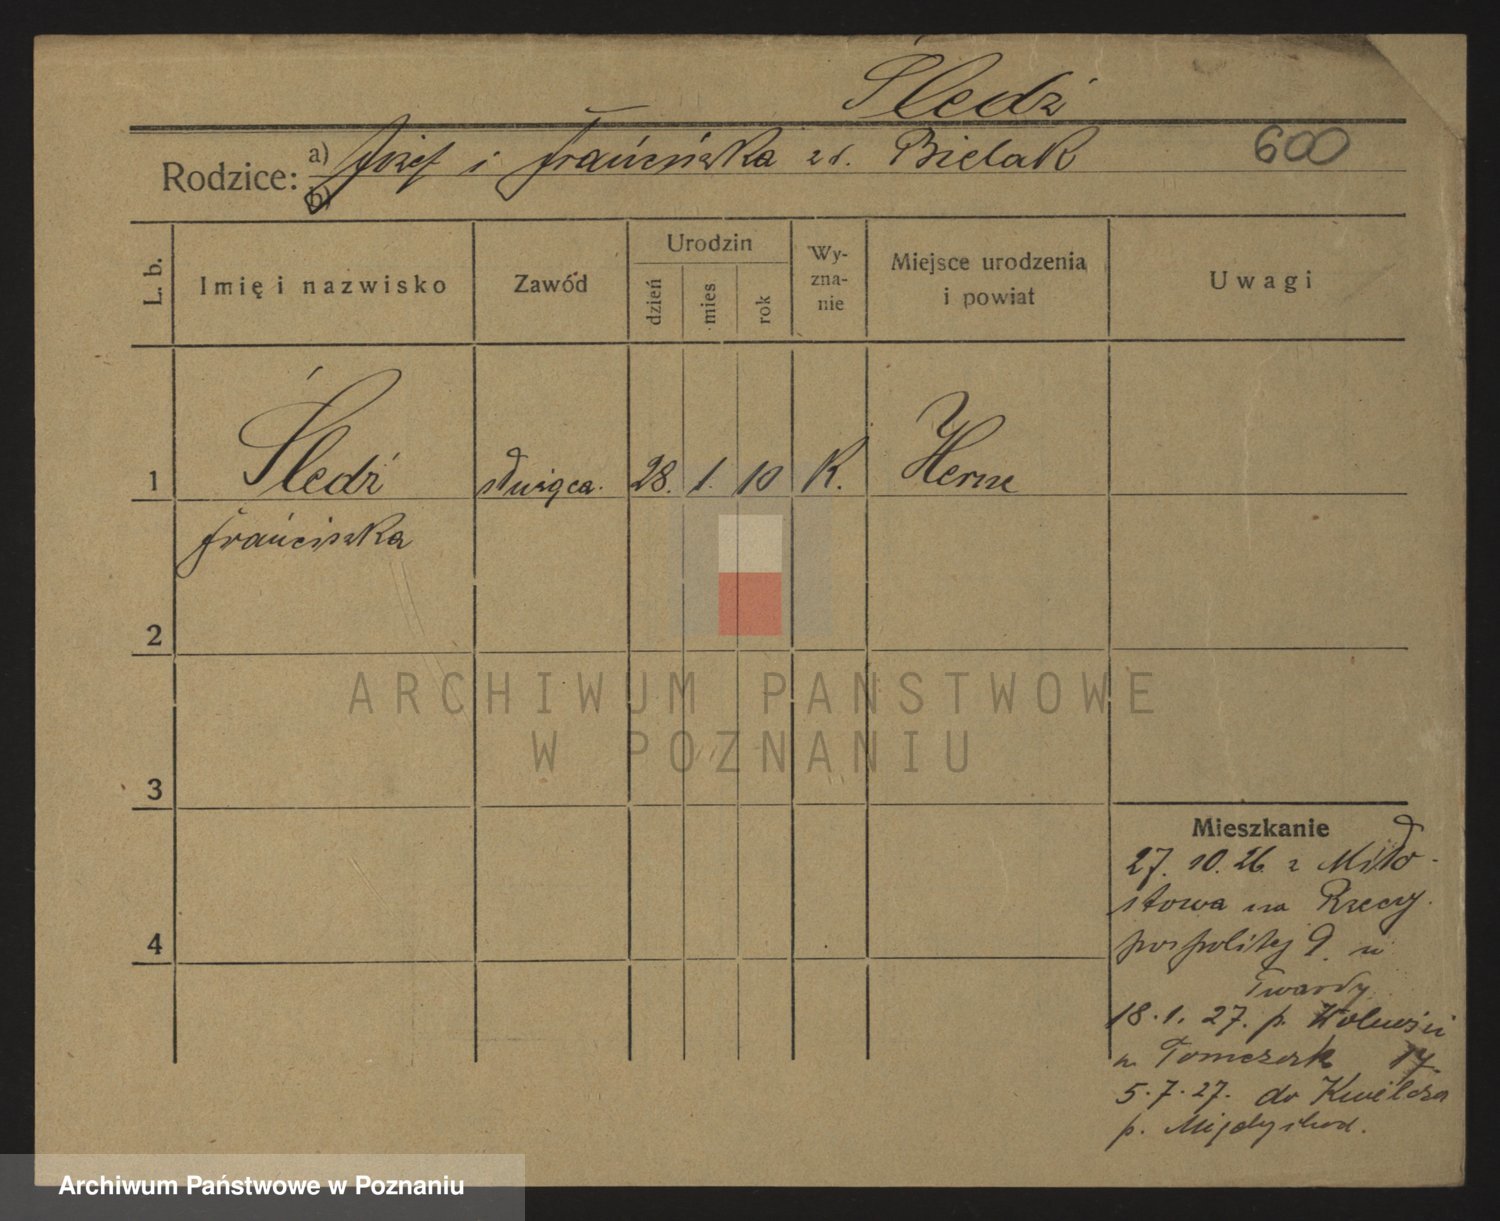 Śledź
Rodzice: a) Józef i Franciszka zd. Bielak 600
b)
L. b. Imię i nazwisko Zawód Urodzin dzień mies rok Wyznanie Miejsce urodzenia i powiat Uwagi
1 Śledź służąca. 28. 1. 10 K. Herne
Franciszka
2
ARCHIWUM PAŃSTWOWE
W POZNANIU
3
Mieszkanie
27. 10. 26. z Miło-
stowa na Rzeczy-
4 pospolitej 9. u
Twardy
18. 1. 27. p. Wolności
u. Tomczak 17.
5. 7. 27. do Kwilcza
p. Międzychod.
Archiwum Państwowe w Poznaniu